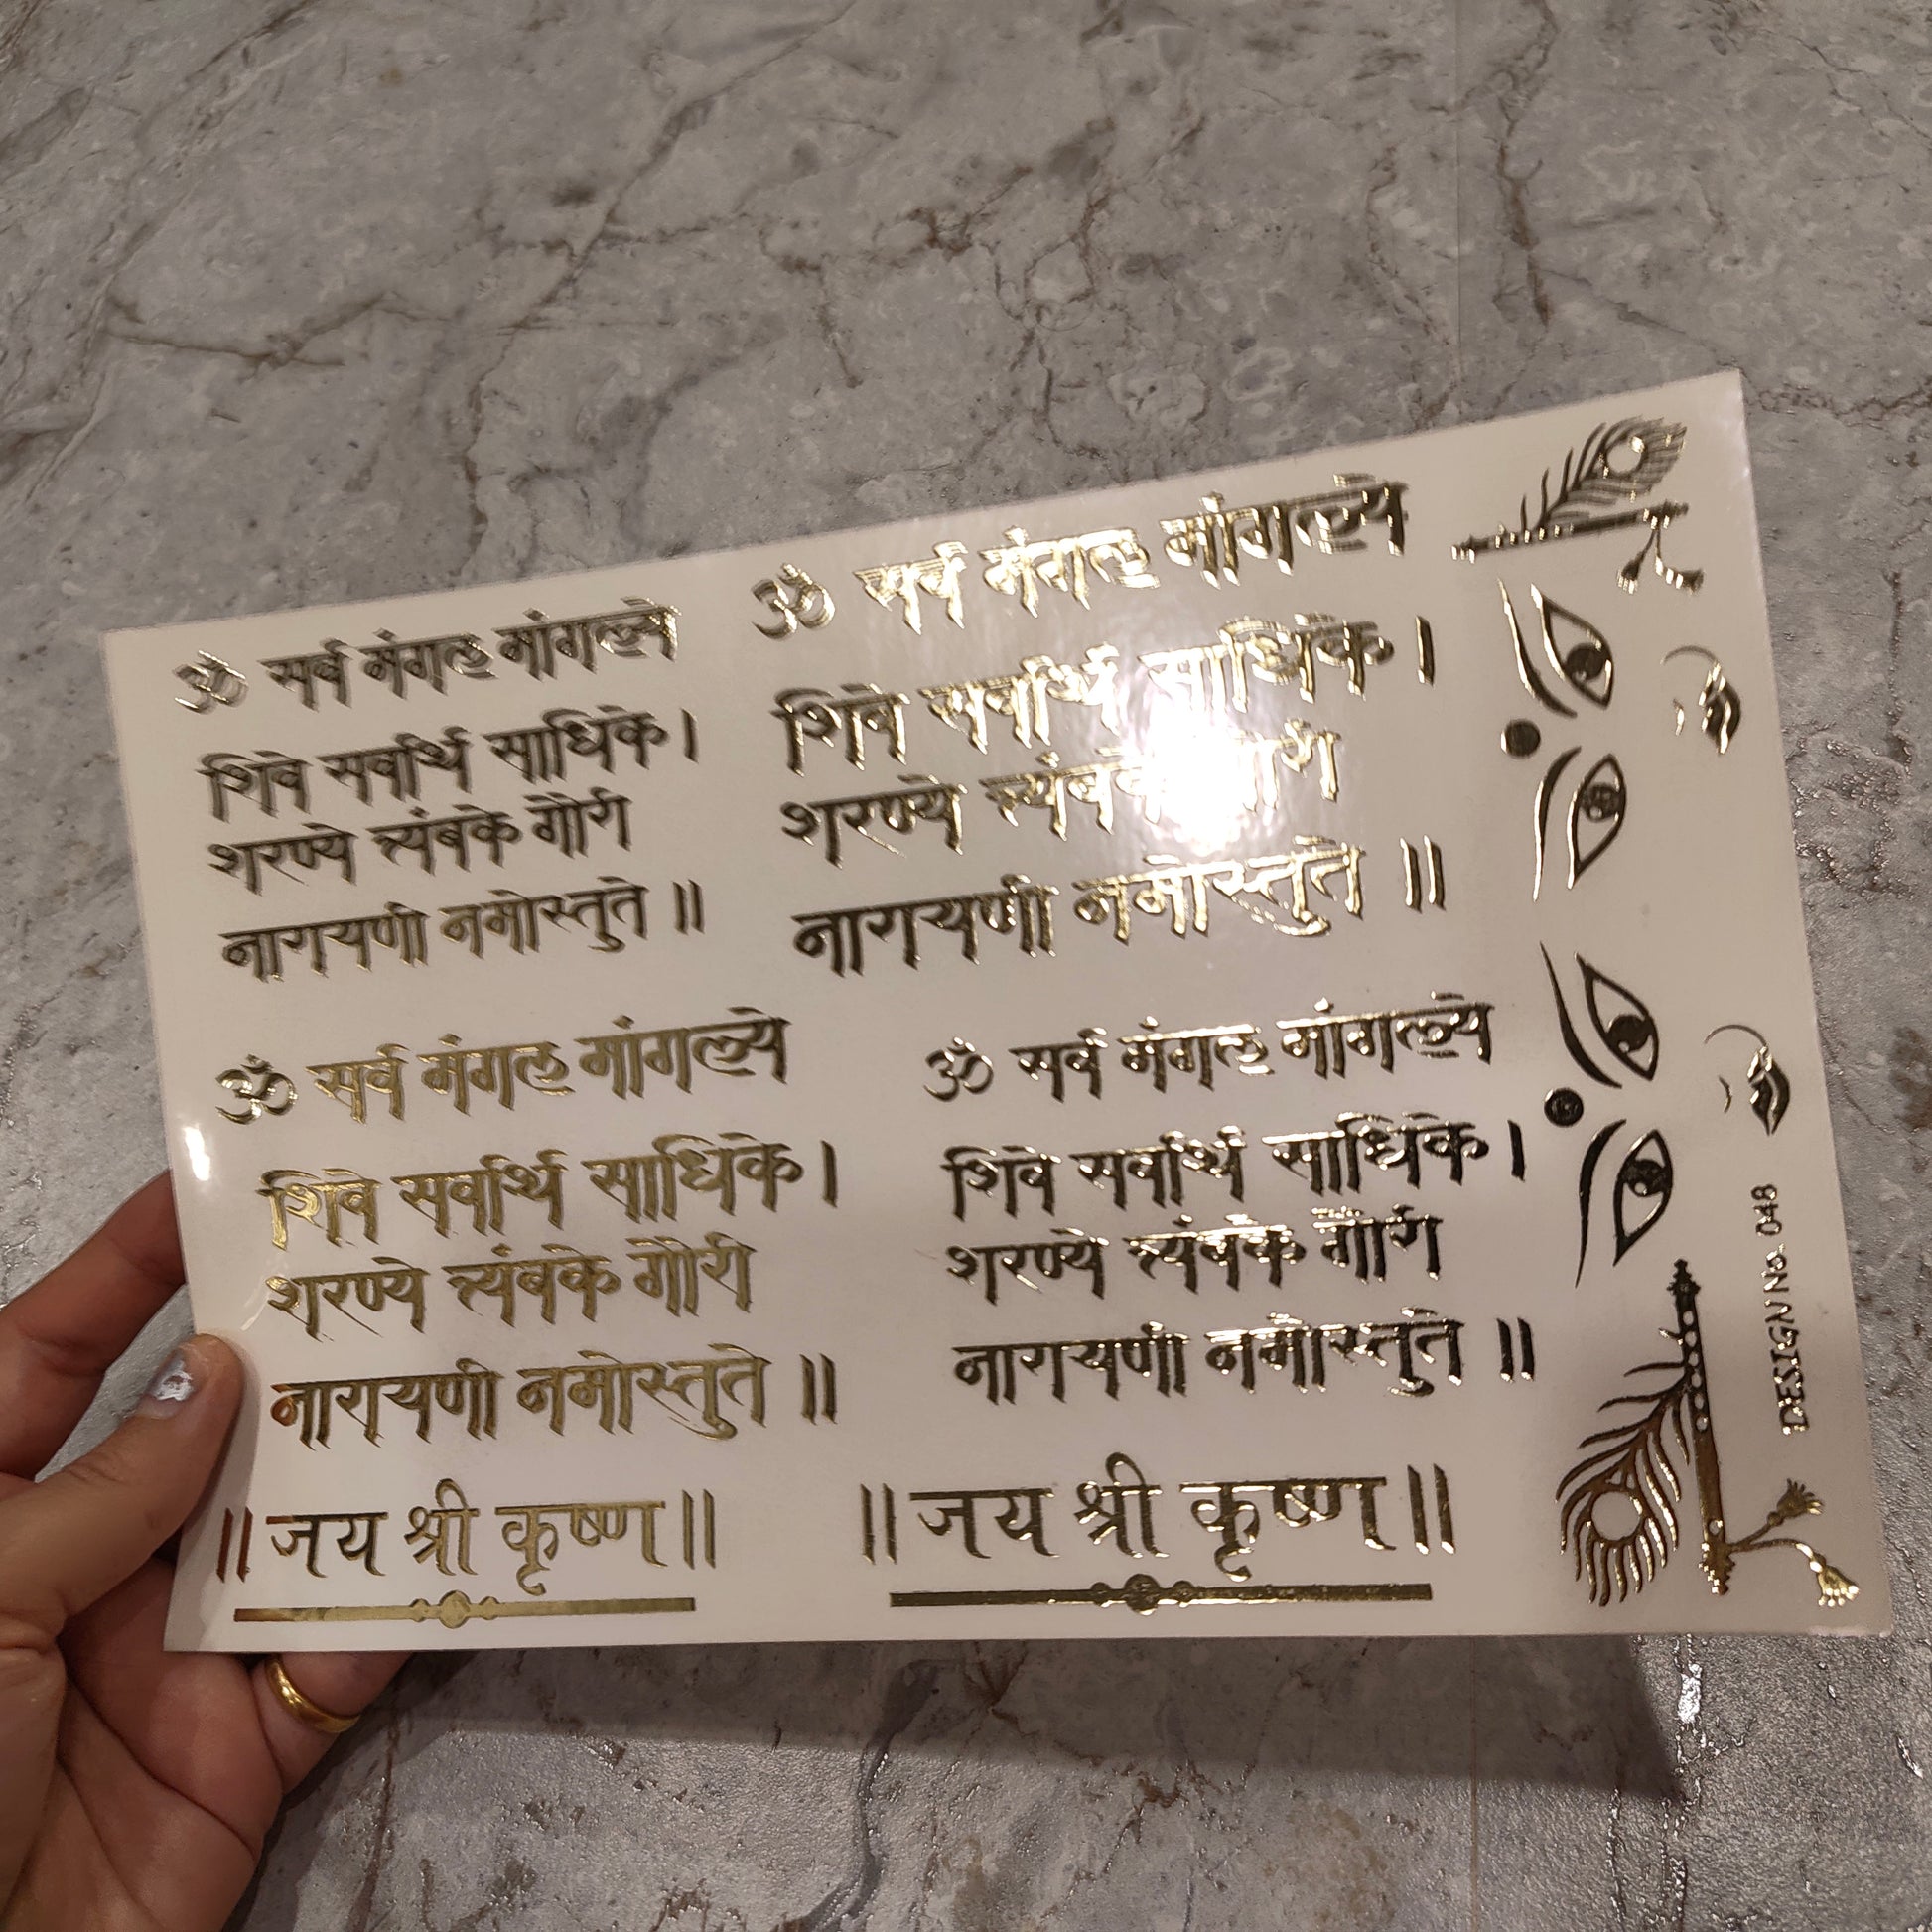 ॐ सर्व मंगल मांगल्ये
शिवे सर्वार्थ साधिके।
शरण्ये त्र्यंबके गौरी
नारायणी नमोस्तुते ॥
ॐ सर्व मंगल मांगल्ये
शिवे सर्वार्थ साधिके।
शरण्ये त्र्यंबके गौरी
नारायणी नमोस्तुते ॥
ॐ सर्व मंगल मांगल्ये
शिवे सर्वार्थ साधिके।
शरण्ये त्र्यंबके गौरी
नारायणी नमोस्तुते ॥
ॐ सर्व मंगल मांगल्ये
शिवे सर्वार्थ साधिके।
शरण्ये त्र्यंबके गौरी
नारायणी नमोस्तुते ॥
॥ जय श्री कृष्ण ॥
॥ जय श्री कृष्ण ॥
DESIGN No. 048